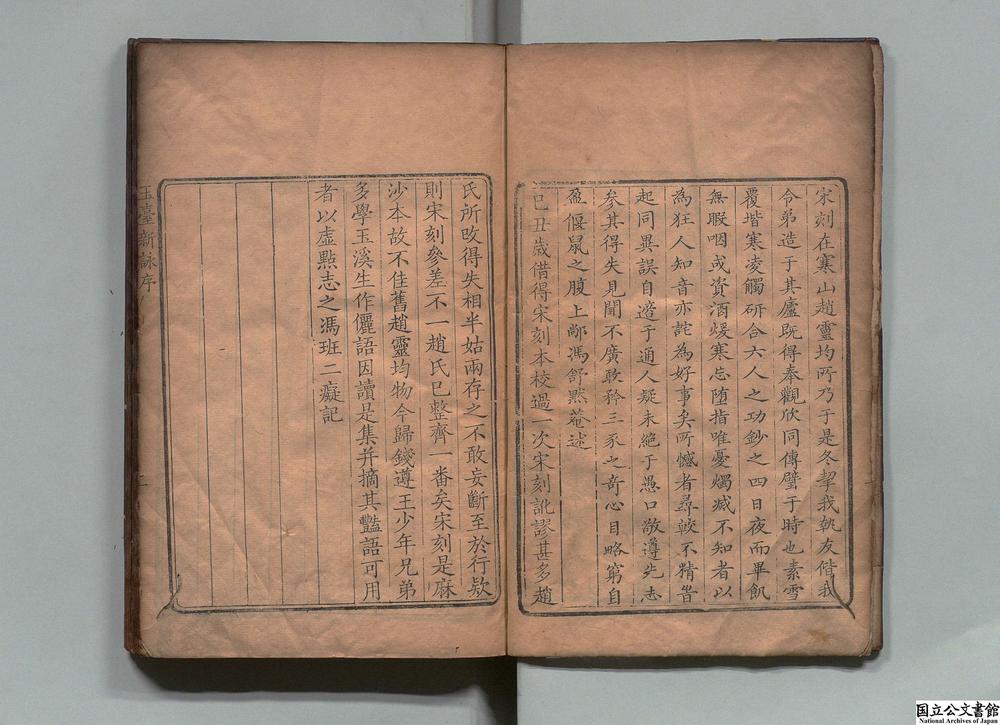 宋刻在寒山趙靈均所乃于是冬挈我執友偕我
令弟造于其廬既得奉觀欣同傳璧于時也素雪
覆堦寒凌觸研合六人之功鈔之四日夜而畢飢
無暇咽或資酒煖寒忘堕指唯憂燭滅不知者以
為狂人知音亦詫為好事矣所憾者尋較不精訾
起同異誤自遵于通人疑未絶于愚口敬遵先志
参其得失見聞不廣敢矜三豕之奇心目略窮自
盈偃鼠之腹上鄺馮舒黙菴述
己丑歳借得宋刻本校過一次宋刻訛謬甚多趙
氏所改得失相半姑兩存之不敢妄斷至於行欵
則宋刻參差不一趙氏已整齊一番矣宋刻是麻
沙本故不佳舊趙靈均物今歸錢遵王少年兄弟
多學玉溪生作儷語因讀是集并摘其豔語可用
者以虛點志之馮班二癡記
玉臺新詠序
二
国立公文書館
National Archives of Japan